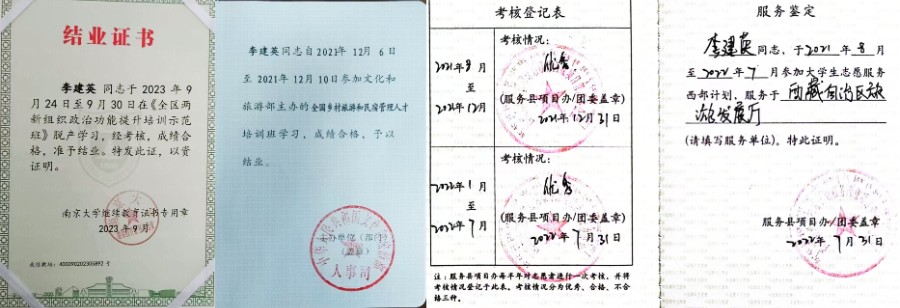 结业证书
李建英 同志于 2023 年 9
月 24 日至 9 月 30 日在《全区两
新组织政治功能提升培训示范
班》脱产学习，经考核，成绩合
格，准予结业。特发此证，以资
证明。
南京大学继续教育证书专用章
2023 年 9 月
李建英同志自2021年 12月 6日
至 2021年 12月 10日参加文化和
旅游部主办的全国乡村旅游和民宿管理人才
培训班学习，成绩合格，予以
结业。
主办单位（部门）
（盖章）
人事司
考核登记表
2021年9月
至
2021年12月
考核情况：
优秀
(服务县项目办/团委盖章)
2021年12月31日
2022年1月
至
2022年7月
考核情况：
优秀
(服务县项目办/团委盖章)
2022年7月31日
注：服务县项目办每半年对志愿者进行一次考核，并将
考核情况登记于此表。考核情况分为优秀、合格、不合
格三种。
服务鉴定
李建英同志，于2021年8月
至2022年7月参加大学生志愿服务
西部计划，服务于西藏自治区旅
游发展厅
(请填写服务单位)。特此证明。
服务县项目办/团委盖章
2022年7月31日